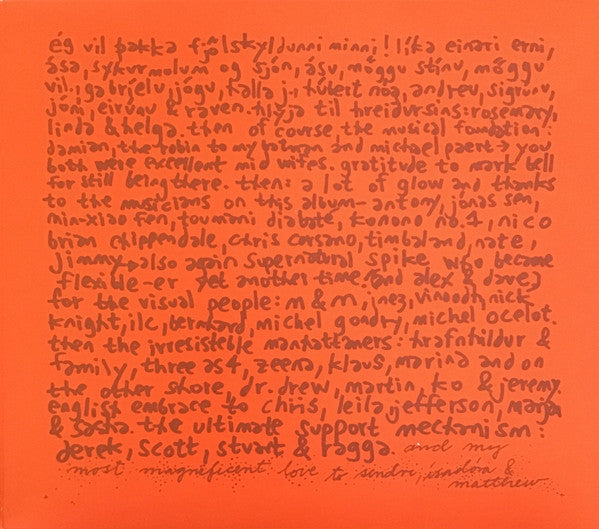 ég vil þakka fjölskyldunni minni! líka einari erni,
ása, sykurmolum og sjón, ásu, möggu stínu, möggu
vil., gabríelu, jógu, halla j., húbert nóa, andreu, sigrúnu,
jóní, eirúnu & raven. hlýja til hreiðursins: rosemary,
linda & helga. then of course the musical foundation:
damian, the robin to my batman and michael paert → you
both were excellent mid wifes. gratitude to mark bell
for still being there. then: a lot of glow and thanks
to the musicians on this album - antony, jónas sen,
min-xiao fen, toumani diabate, konono no. 1, nico
brian chippendale, chris corsano, timbaland, nate,
jimmy → also again supernatural spike who became
flexible-er yet another time. (and alex & dave)
for the visual people: m & m, inez, vinoodh, nick
knight, ilc, bernhard, michel gondry, michel ocelot.
then the irresistible manhattaners: hrafnhildur &
family, three as 4, zeena, klaus, marina and on
the other shore, dr. drew, martin, ko & jeremy.
english embrace to chris, leila, jefferson,
& sasha. the ultimate support mechanism:
derek, scott, stuart & ragga. and my
most magnificent love to sindri, ísadóra &
matthew